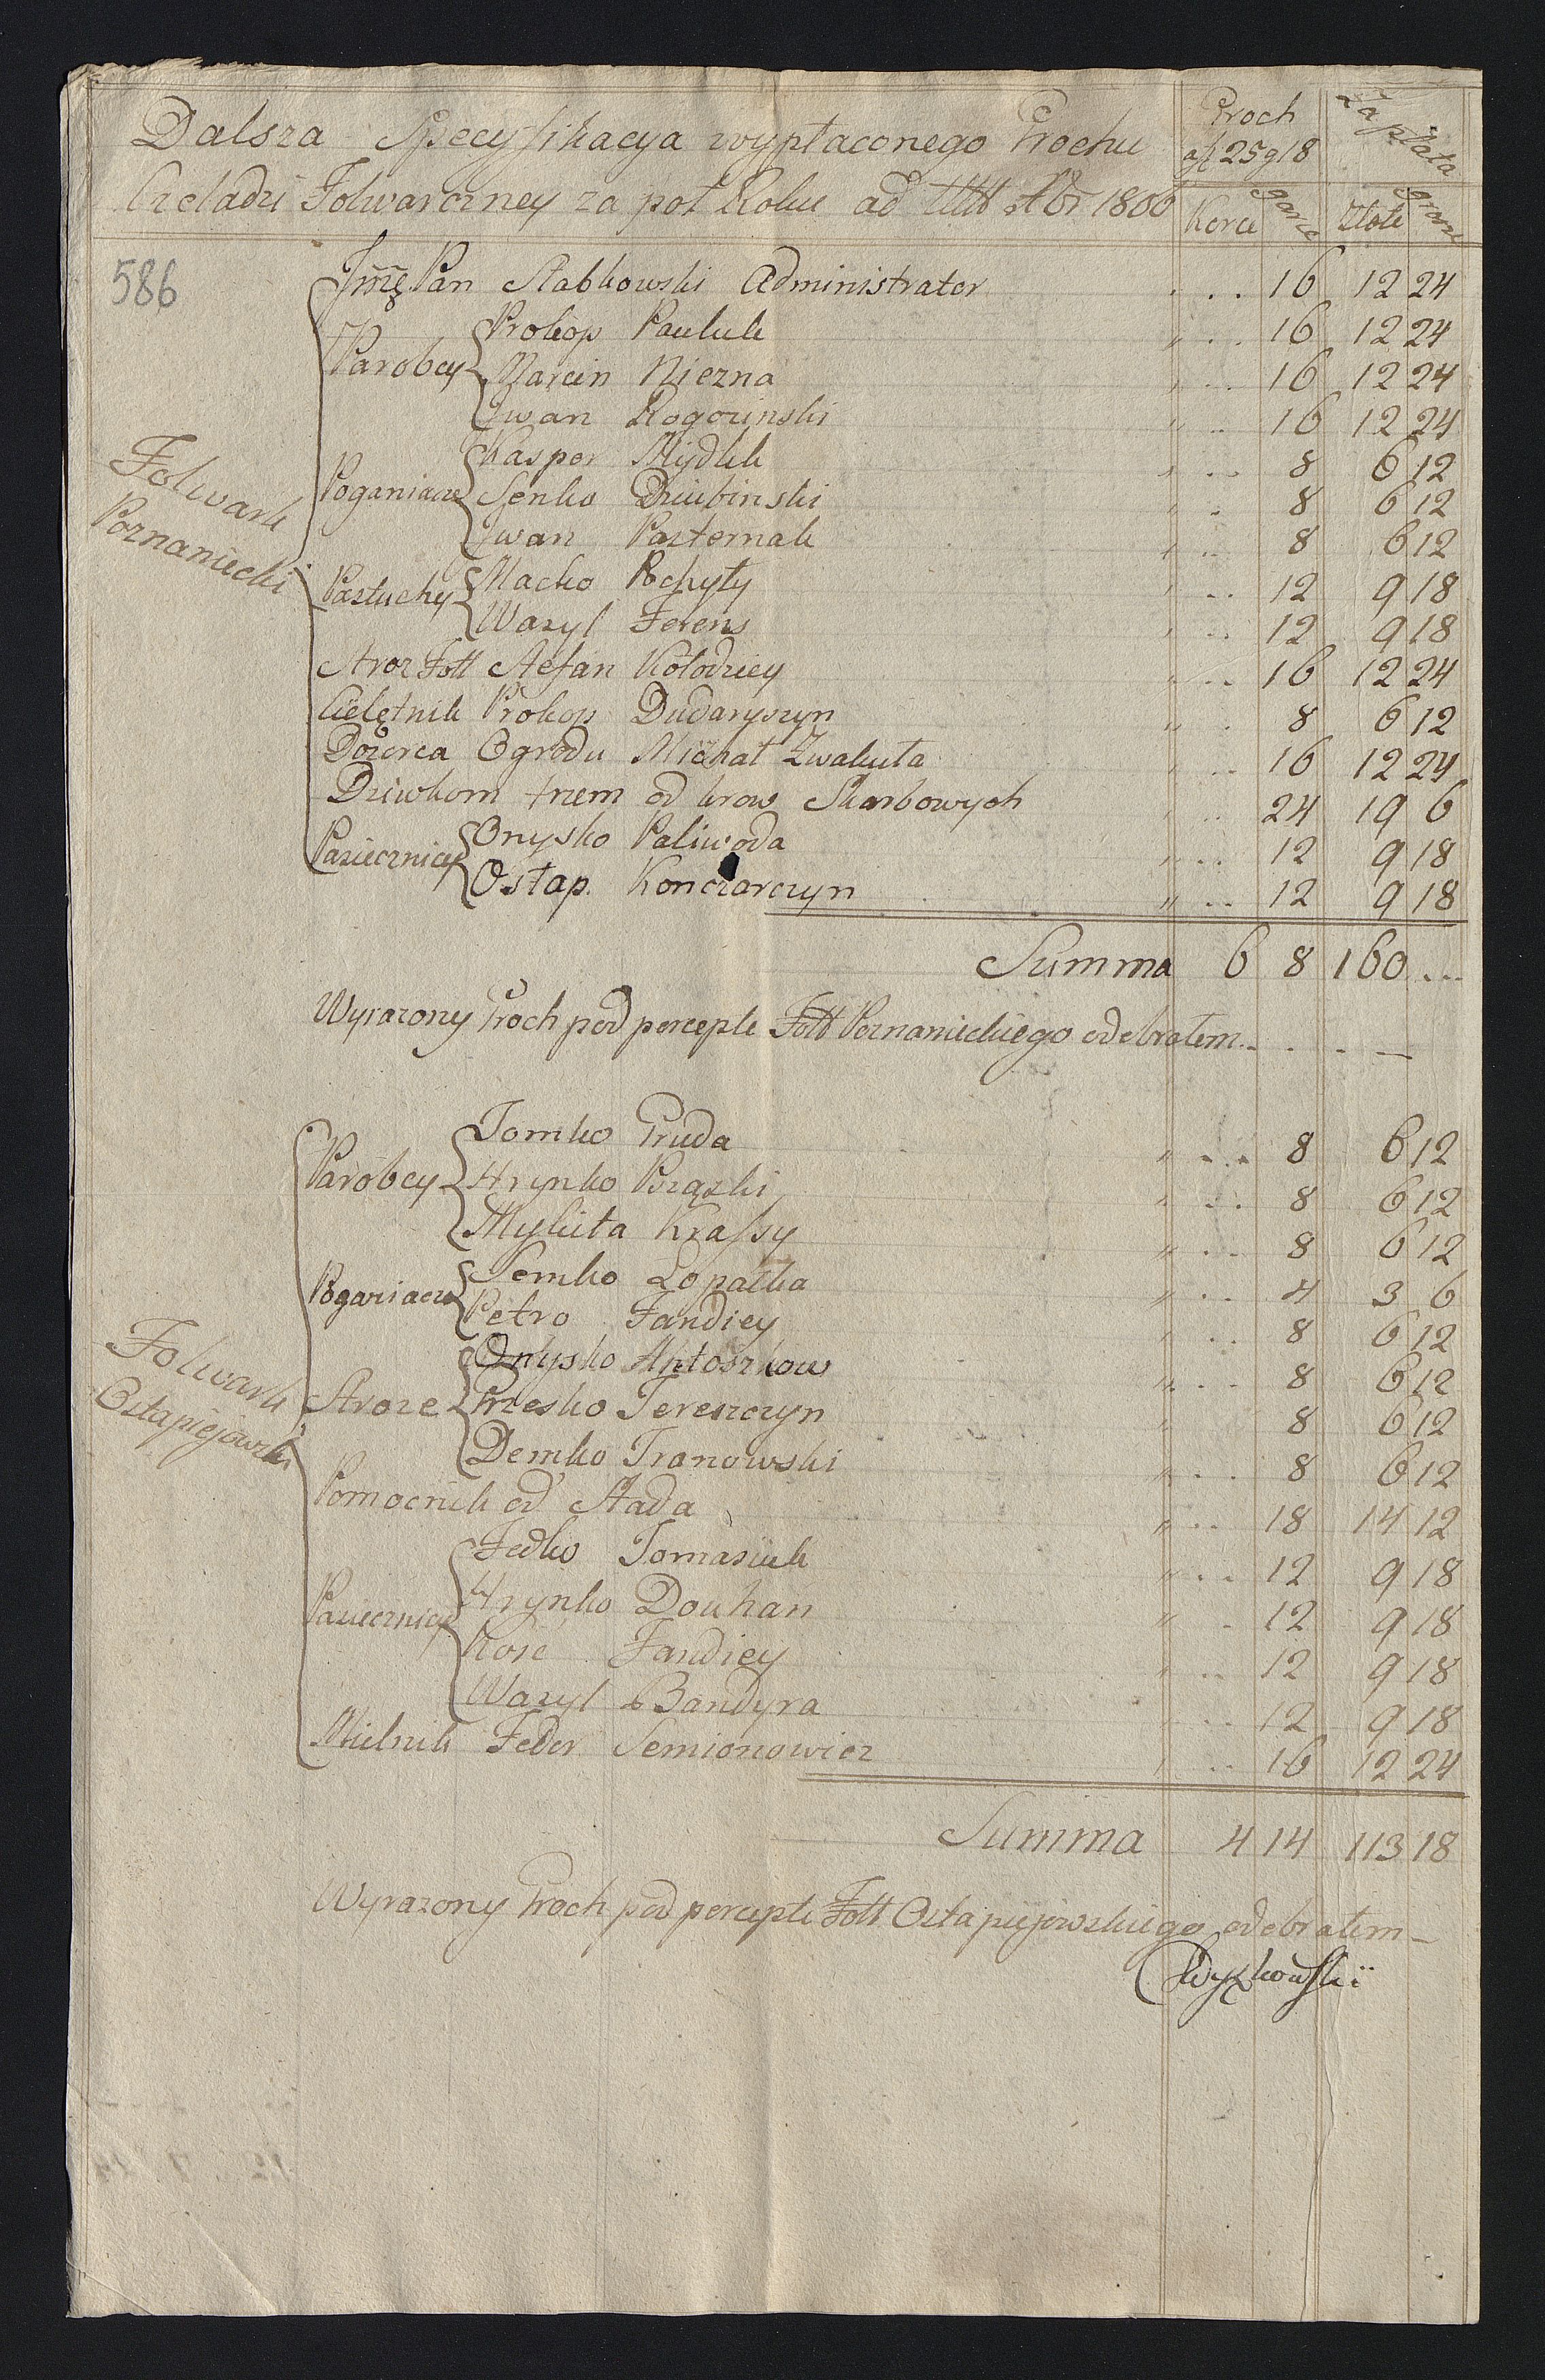 Dalsza Specyfikacya wypłaconego Grochu
Czeladzi Folwarczney za poł Roku ad 1800
Groch
af 25 g 18
Zapłata
Korce garce Złote grosze
586
Folwark
Poznaniecki
Jmę Pan Słabkowski Administrator . . . 16 12 24
Parobcy
Prokop Pauluk " . . 16 12 24
Marcin Niezna " . . 16 12 24
Jwan Rogozinski " . . 16 12 24
Poganiacze
Kasper Mydlik " . . 8 6 12
Senko Dziubinski " . 8 6 12
Jwan Pasternak " . . 8 6 12
Pastuchy
Macko Pochyły " . . 12 9 18
Wasyl Ferens " . . 12 9 18
Stroz Foll Stefan Kołodziey " . . 16 12 24
Cielętnik Prokop Dudaryszyn " . 8 6 12
Dozorca Ogrodu Michał Zwakuta " . . 16 12 24
Dziwkom trzem od krow Skarbowych " . . 24 19 6
Pasiecznicy
Onysko Paliwoda " . . 12 9 18
Ostap. Konczarczyn " . . 12 9 18
Summa 6 8 160 ...
Wyrazony Groch pod percepte Foll Poznanieckiego odebrałem . . . . —
Folwark
Ostapiejowski
Parobcy
Tomko Gruda " . . . 8 6 12
Hrynko Porąski " . . . 8 6 12
Mykita Krassy " . . 8 6 12
Poganiacze
Semko Łopatka " . . 4 3 6
Petro Fandiey " . . 8 6 12
Stroze
Onysko Antoszkow " . . . 8 6 12
Grzesko Tereszczyn " 8 6 12
Demko Tranowski " . . . 8 6 12
Pomocnik od Stada " . . 18 14 12
Pasiecznicy
Fedko Tomasiuk " . . 12 9 18
Hrynko Douhan " . 12 9 18
Kość Fandiey " . . 12 9 18
Wasyl Bandyra . . 12 9 18
Mielnik Fedor Semionowicz " . . 16 12 24
Summa 4 14 113 18
Wyrazony Groch pod percepte Foll Ostapiejowskiego odebrałem —